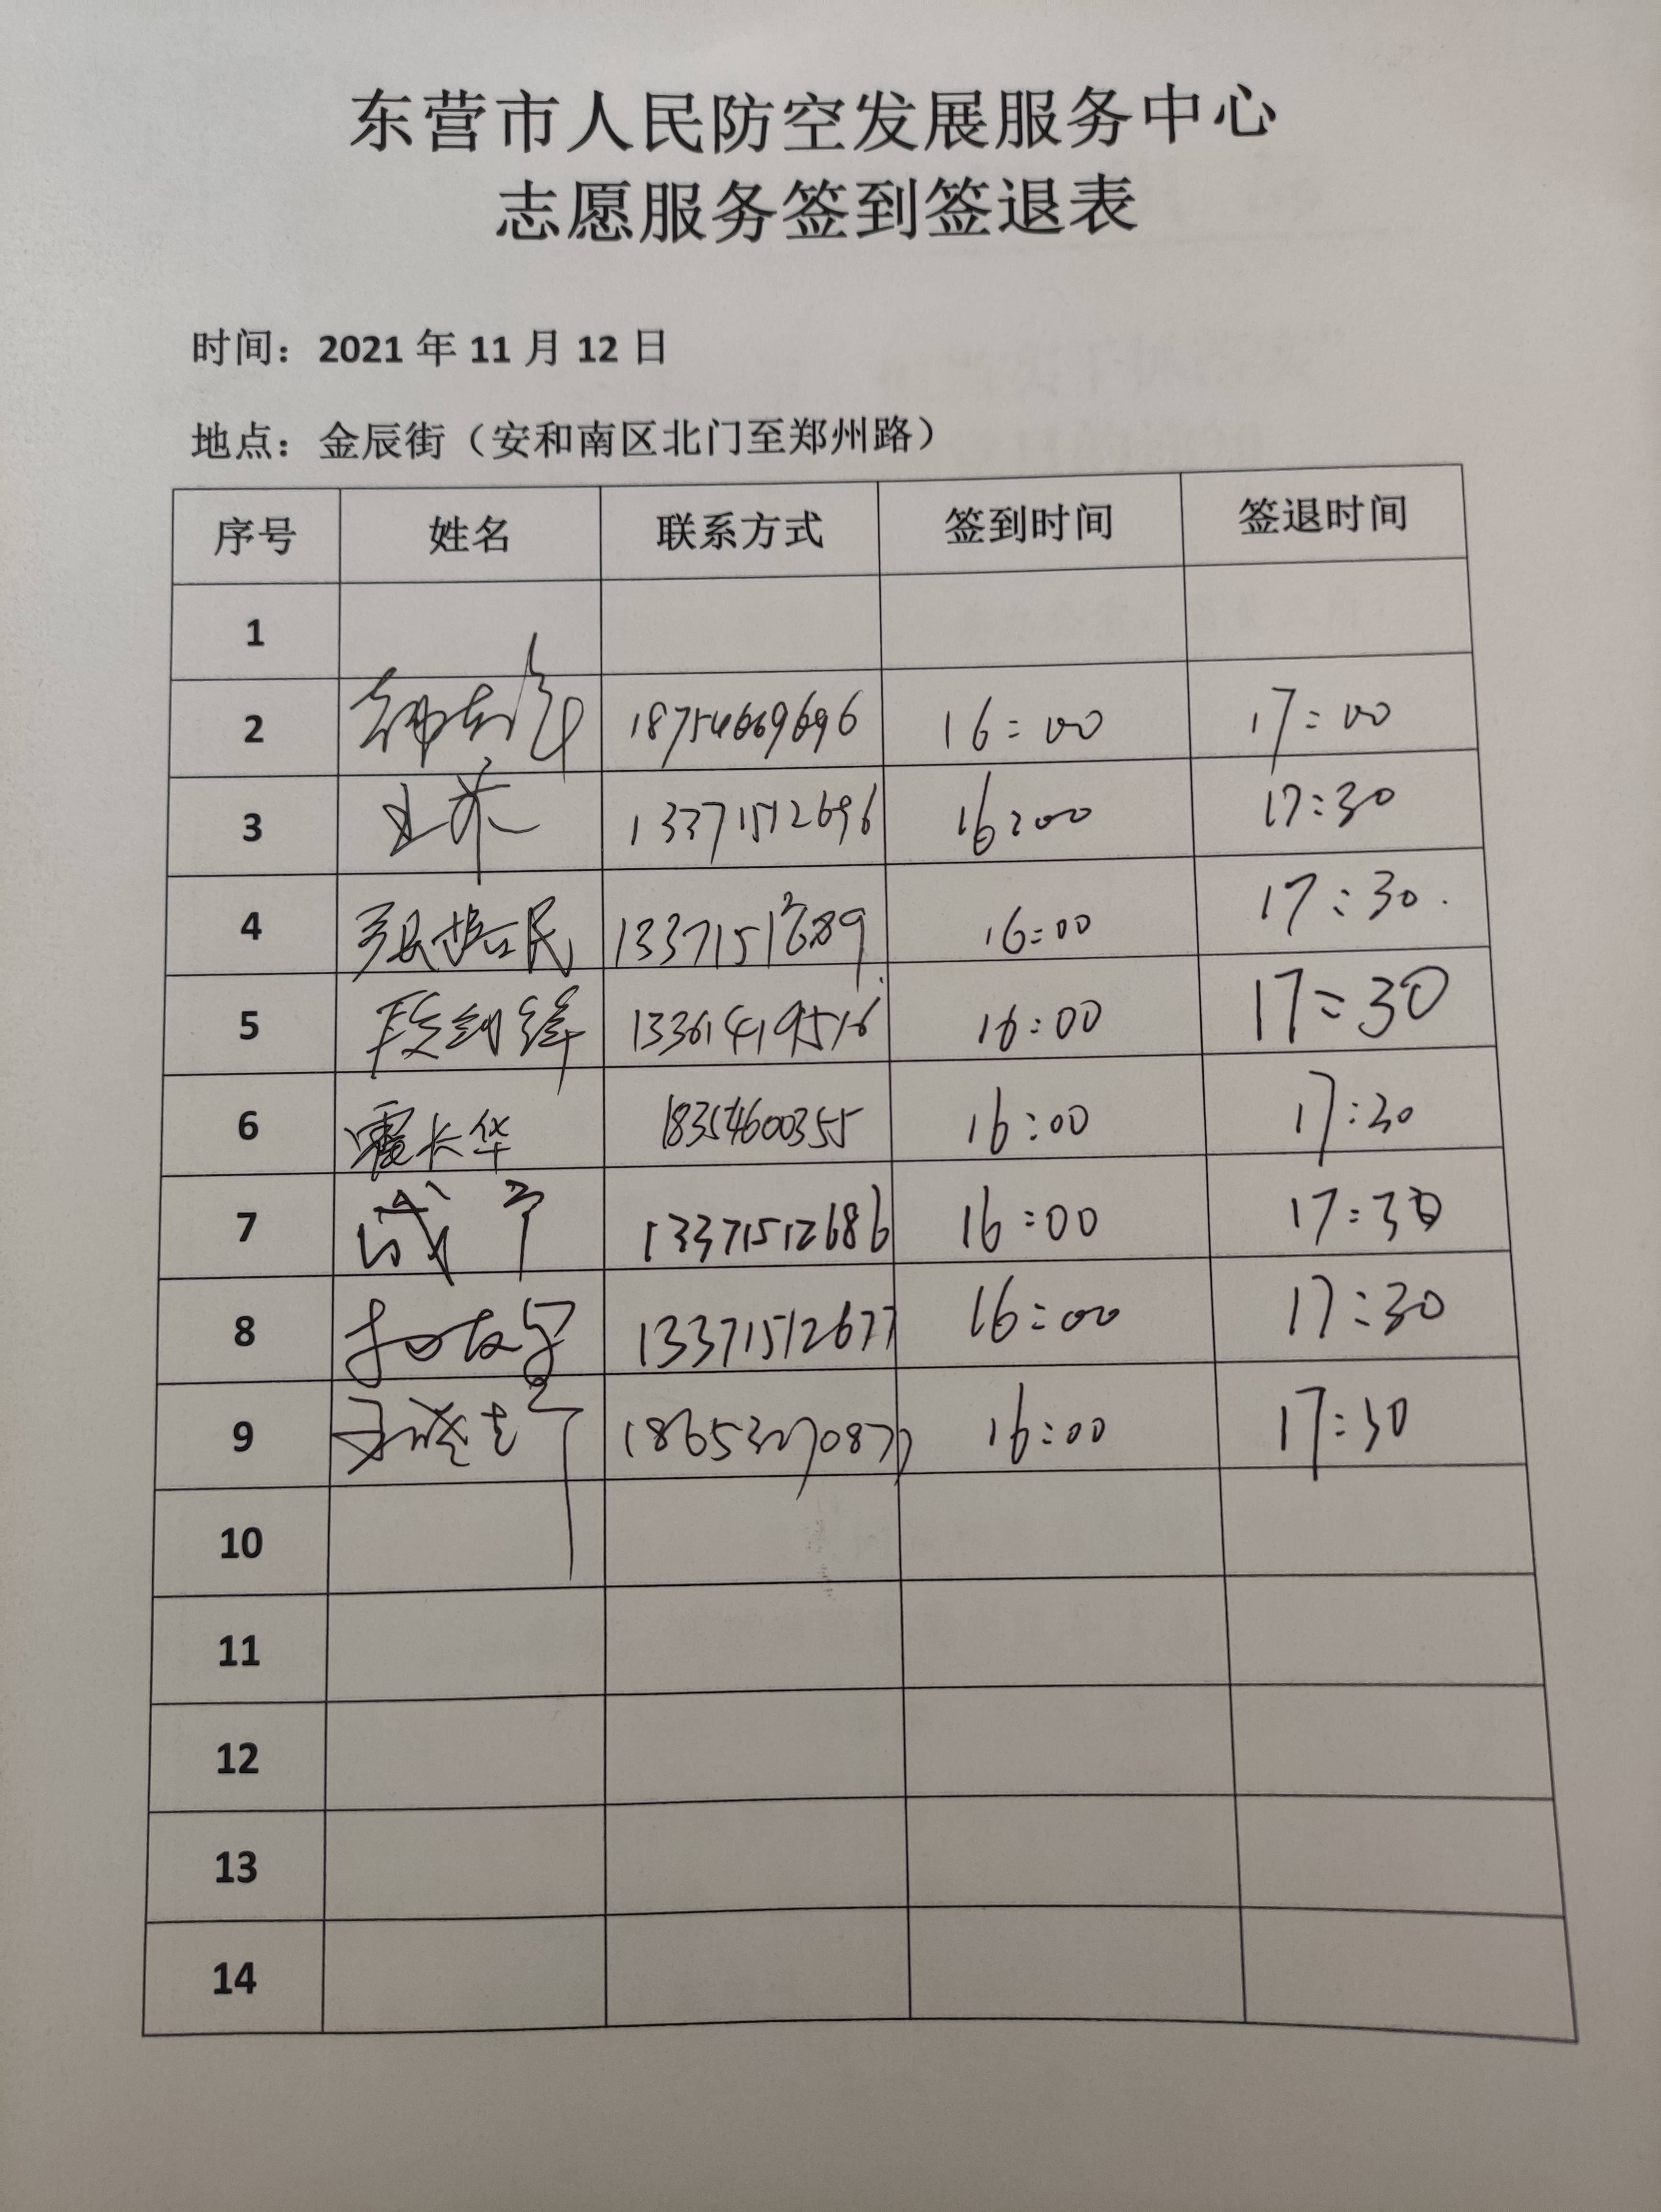 东营市人民防空发展服务中心
志愿服务签到签退表
时间：2021年11月12日
地点：金辰街（安和南区北门至郑州路）
序号 姓名 联系方式 签到时间 签退时间
1
2 18754669696 16:00 17:00
3 13371512696 16:00 17:30
4 16:00 17:30.
5 段剑锋 13361419516 16:00 17:30
6 霍长华 18354600355 16:00 17:30
7 13371512686 16:00 17:30
8 13371512677 16:00 17:30
9 16:00 17:30
10
11
12
13
14